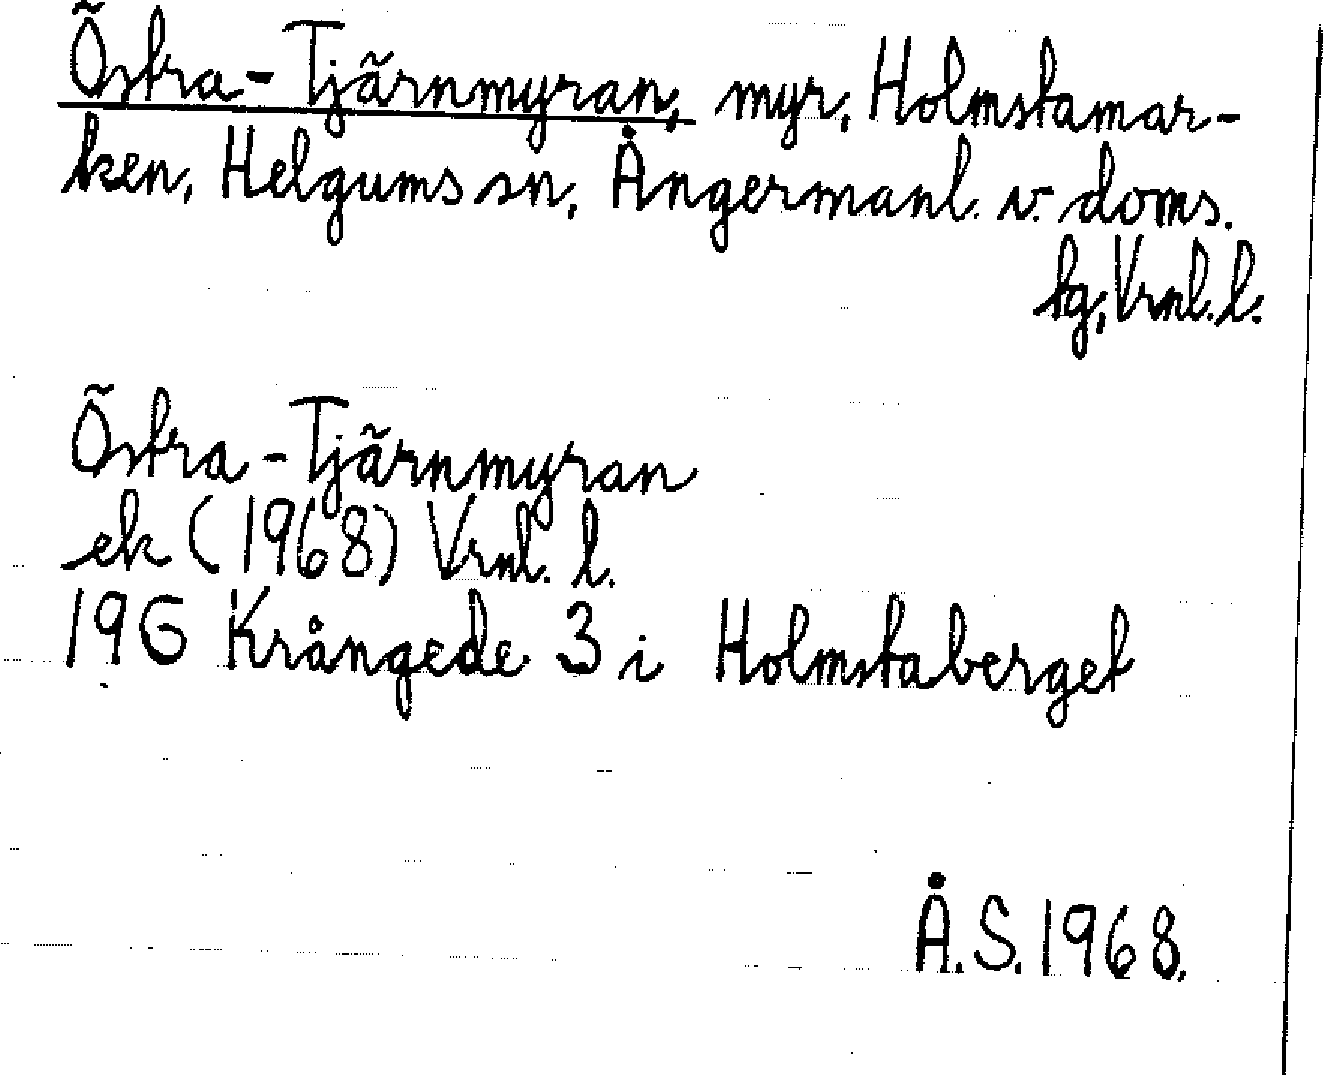 Östra-Tjärnmyran, myr, Holmstamar-
ken, Helgums sn, Ångermanl. v. doms.
hg, Vrnl. l.
Östra-Tjärnmyran
ek (1968) Vrnl. l.
19G Krångede 3 i Holmstaberget
Å.S. 1968.